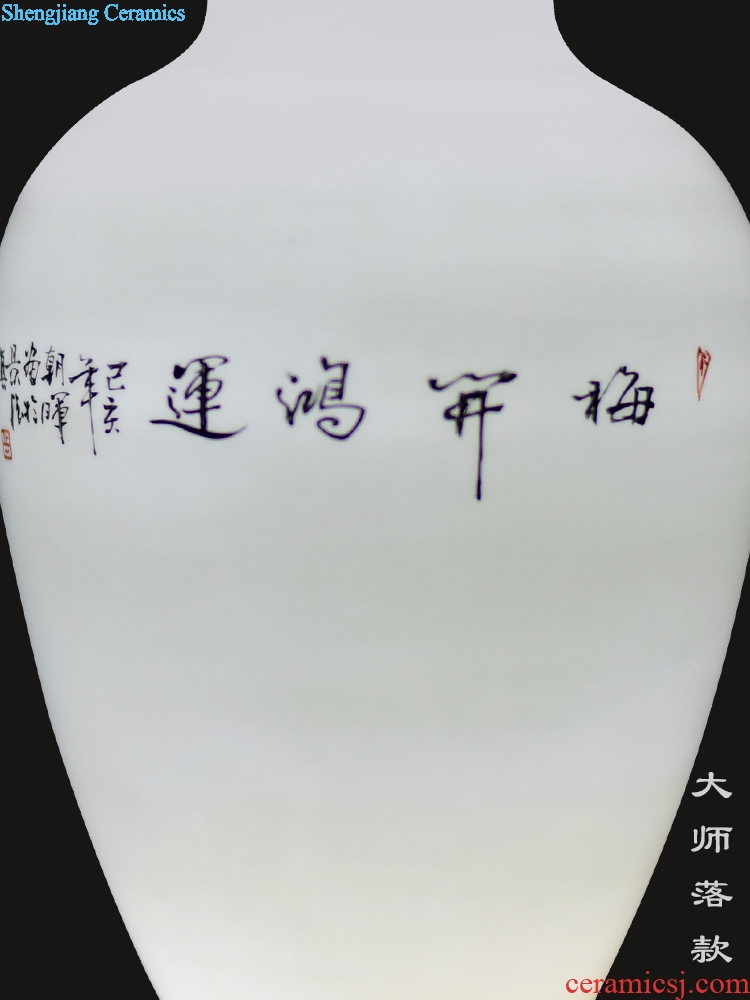 Shengjiang Ceramics
梅開鴻運
己亥
年
朝暉
寫於
景德
鎮
大师落款
ceramicsj.com